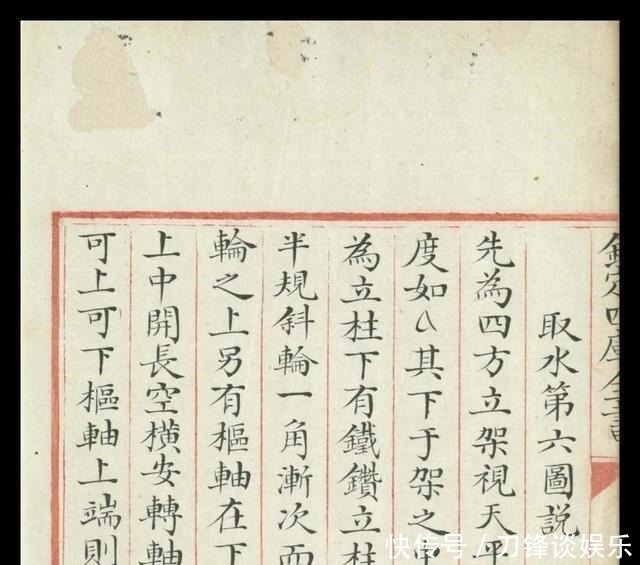 欽定四庫全書
取水第六圖說
先為四方立架視天平
度如其下于架之中
為立柱下有鐵鑽立柱
半規斜輪一角漸次而
輪之上另有樞軸在下
上中開長空橫安轉軸
可上可下樞軸上端則
快传号 / 刀锋谈娱乐